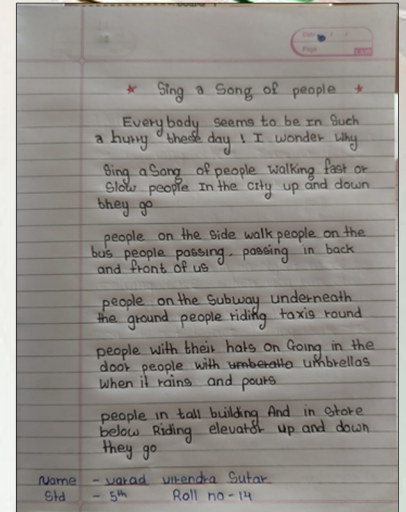 Date
Page
★ Sing a Song of people ★
Everybody seems to be in Such
a hurry these day ! I wonder Why
Sing a Song of people walking fast or
Slow people In the City up and down
they go
people on the side walk people on the
bus people passing. passing in back
and front of us
people on the Subway underneath
the ground people riding taxis round
people with their hats on Going in the
door people with umberalla umbrellas
when it rains and pours
people in tall building And in Store
below Riding elevator up and down
they go
Name - varad virendra Sutar
Std - 5th Roll no - 14